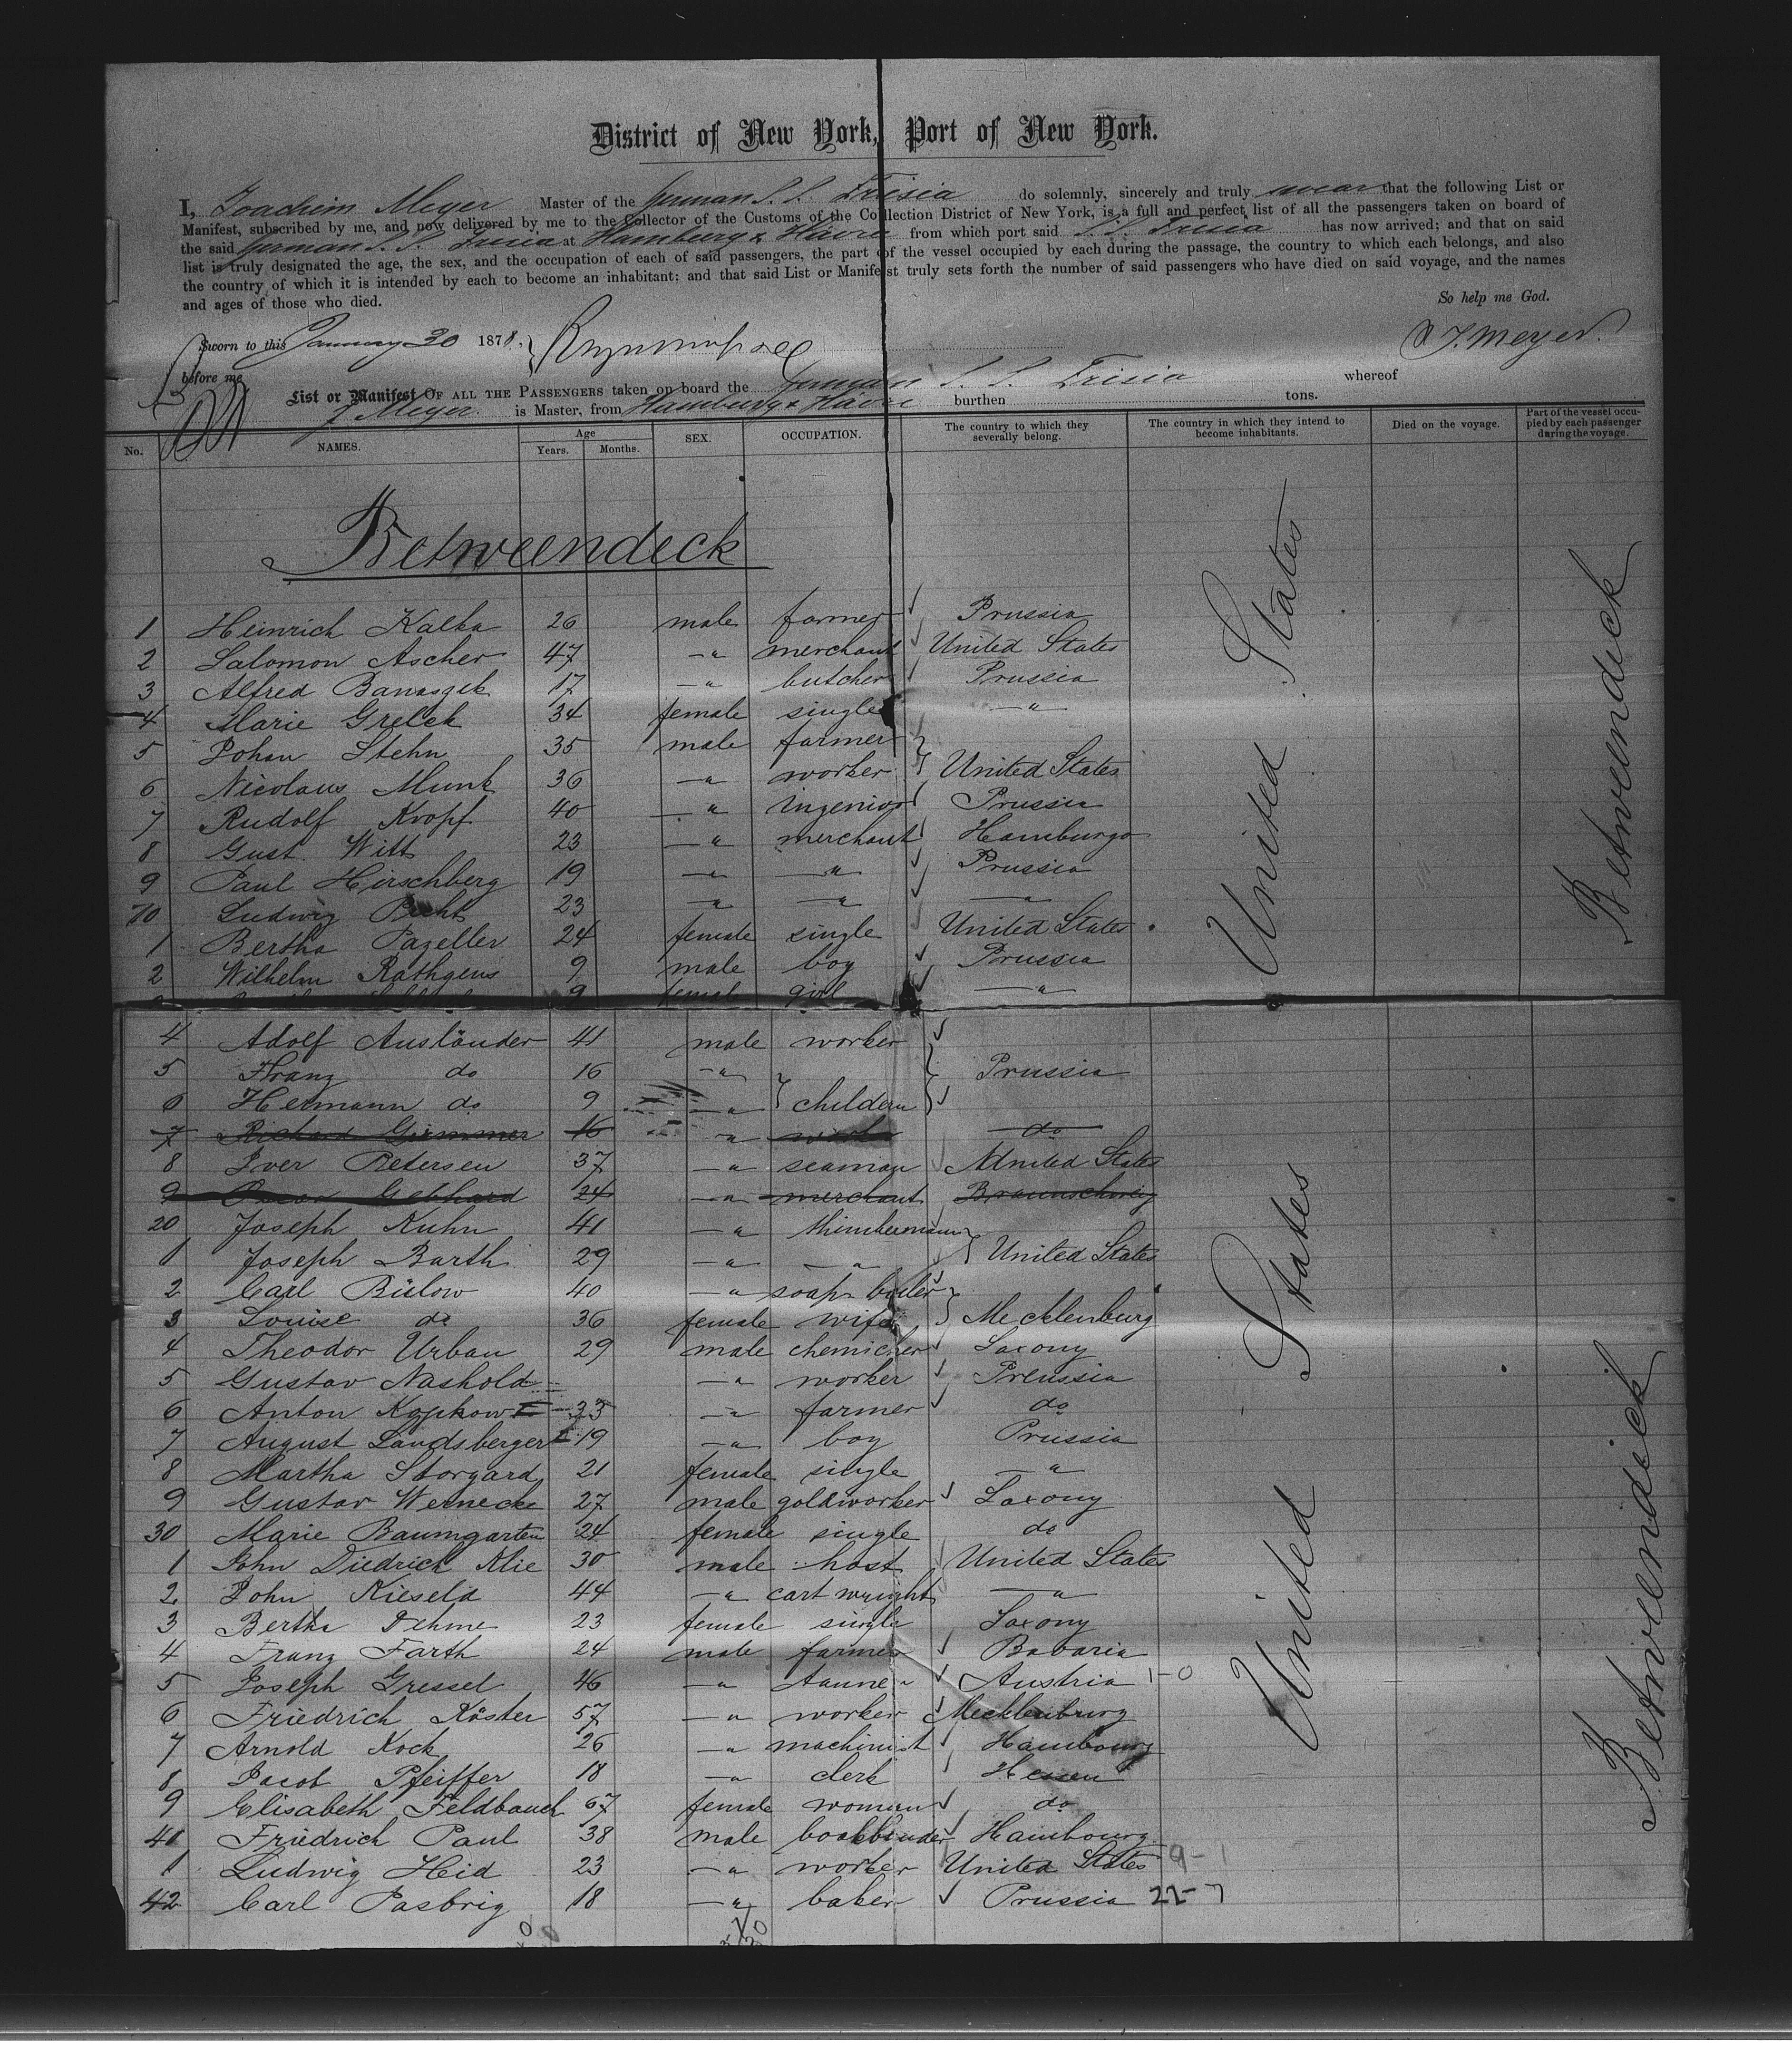 District of New York, Port of New York.
I, Joachim Meyer Master of the German S. S. Frisia do solemnly, sincerely and truly swear that the following List or
Manifest, subscribed by me, and now delivered by me to the Collector of the Customs of the Collection District of New York, is a full and perfect list of all the passengers taken on board of
the said German S. S. Frisia at Hamburg & Hâvre from which port said S. S. Frisia has now arrived; and that on said
list is truly designated the age, the sex, and the occupation of each of said passengers, the part of the vessel occupied by each during the passage, the country to which each belongs, and also
the country of which it is intended by each to become an inhabitant; and that said List or Manifest truly sets forth the number of said passengers who have died on said voyage, and the names
and ages of those who died.
So help me God.
Sworn to this January 30 1878.
J. Meyer.
before me
List or Manifest OF ALL THE PASSENGERS taken on board the German S. S. Frisia whereof
J Meyer. is Master, from Hamburg & Hâvre burthen tons.
No. NAMES. Age Years. Months. SEX. OCCUPATION. The country to which they severally belong. The country in which they intend to become inhabitants. Died on the voyage. Part of the vessel occupied by each passenger during the voyage.
Betweendeck
1 Heinrich Kalka 26 male farmer Prussia
2 Salomon Ascher 47 " merchant United States
3 Alfred Banaszek 17 " butcher Prussia
4 Marie Grelck 34 female single "
5 Johan Stehn 35 male farmer
6 Nicolaus Munk 36 " worker United States
7 Rudolf Kropf 40 " ingenior Prussia
8 Gust. Witt 23 " merchant Hamburgo
9 Paul Hirschberg 19 " " Prussia
10 Ludwig 23 " " "
1 Bertha Pazeller 24 female single United States
2 Wilhelm Rathgens 9 male boy Prussia
9 female girl "
4 Adolf Ausländer 41 male worker
5 Franz do 16 " Prussia
6 Hermann do 9 " childern
7 Richard Grimmer 16 " do
8 Iver Petersen 37 " seaman United States
9 Gebhard 24 " merchant Braunschweig
20 Joseph Kuhn 41 " thimbermann
1 Joseph Barth 29 " " United States
2 Carl Bülow 40 " soap boiler
3 Louise do 36 female wife Mecklenburg
4 Theodor Urban 29 male chemicher Saxony
5 Gustav Nashold " worker Preussia
6 Anton Kopkow 33 " farmer do
7 August Landsberger 19 " boy Prussia
8 Martha Storgard 21 female single "
9 Gustav Wernecke 27 male goldworker Saxony
30 Marie Baumgarten 24 female single do
1 John Diedrich Klie 30 male host United States
2 John Kieseld 44 " cart wright "
3 Bertha Oehme 23 female single Saxony
4 Franz Farth 24 male farmer Bavaria
5 Joseph Gressel 46 " tanner Austria 1-0
6 Friedrich Köster 57 " worker Mecklenburg
7 Arnold Kock 26 " machinist Hambourg
8 Jacob Pfeiffer 18 " clerk Hessen
9 Elisabeth Feldbauch 67 female woman do
40 Friedrich Paul 38 male bookbinder Hambourg
1 Ludwig Heid 23 " worker United States 9-1
42 Carl Pasbrig 18 " baker Prussia 22-7
United States
Betweendeck
United States
Betweendeck